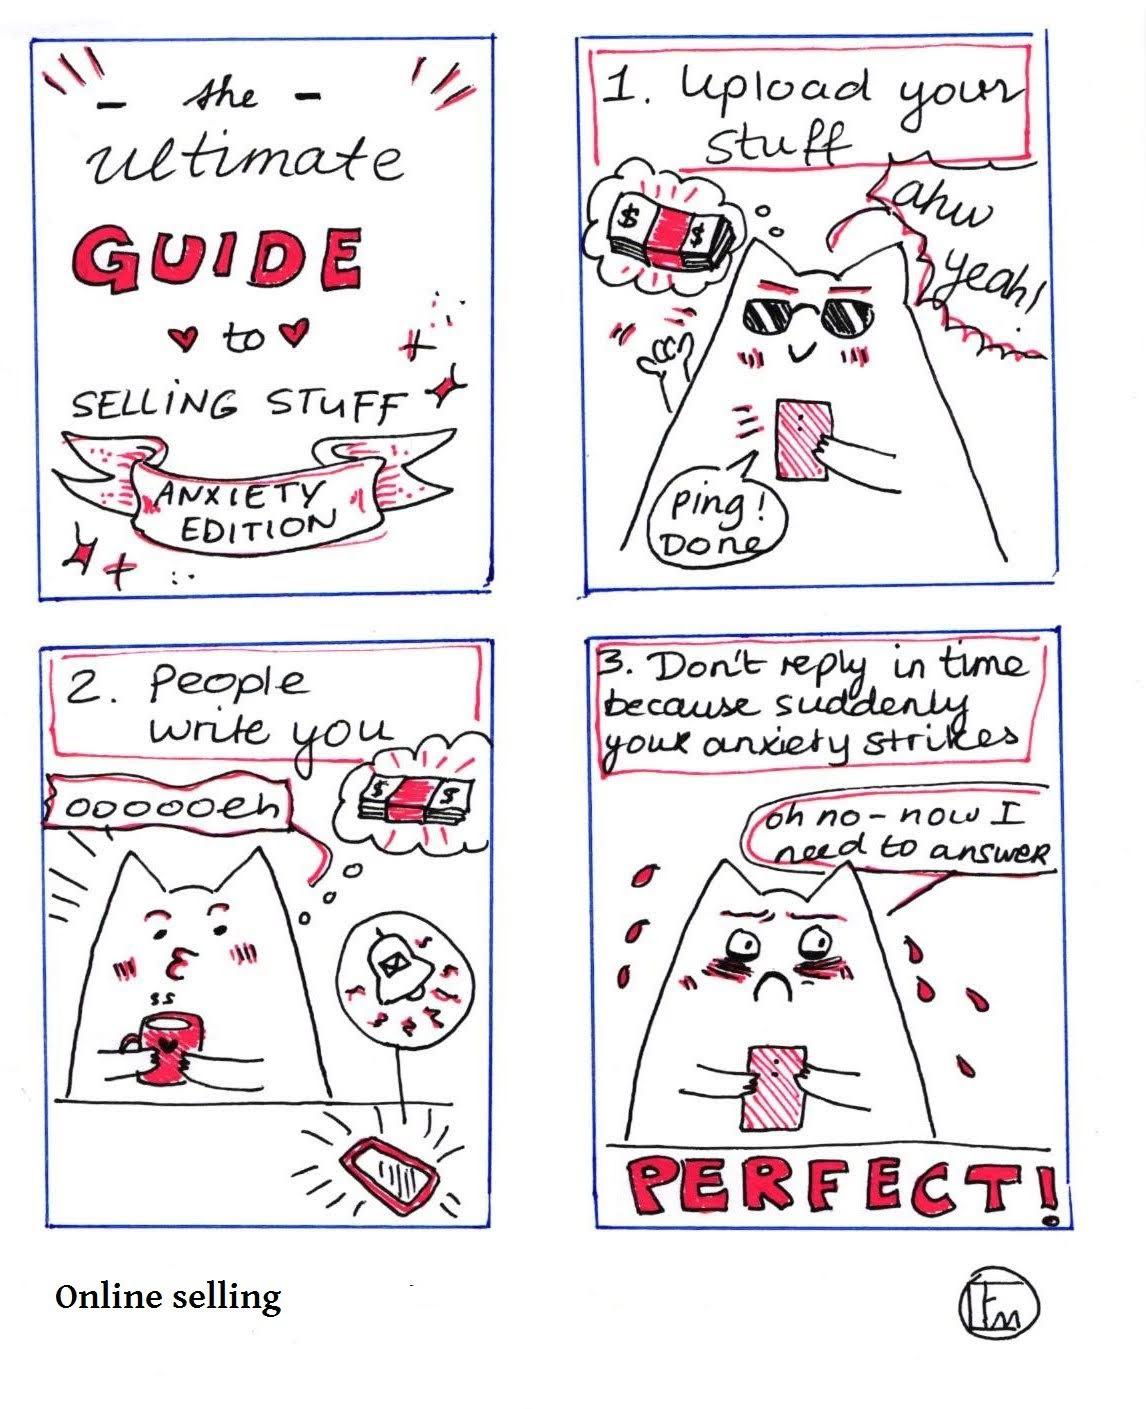 - the -
ultimate
GUIDE
to
SELLING STUFF
ANXIETY
EDITION
1. Upload your
stuff
$ $
ahw
yeah!
Ping!
Done
2. People
write you
oooooeh
$ $
3. Don't reply in time
because suddenly
your anxiety strikes
oh no - now I
need to answer
PERFECT!
Online selling